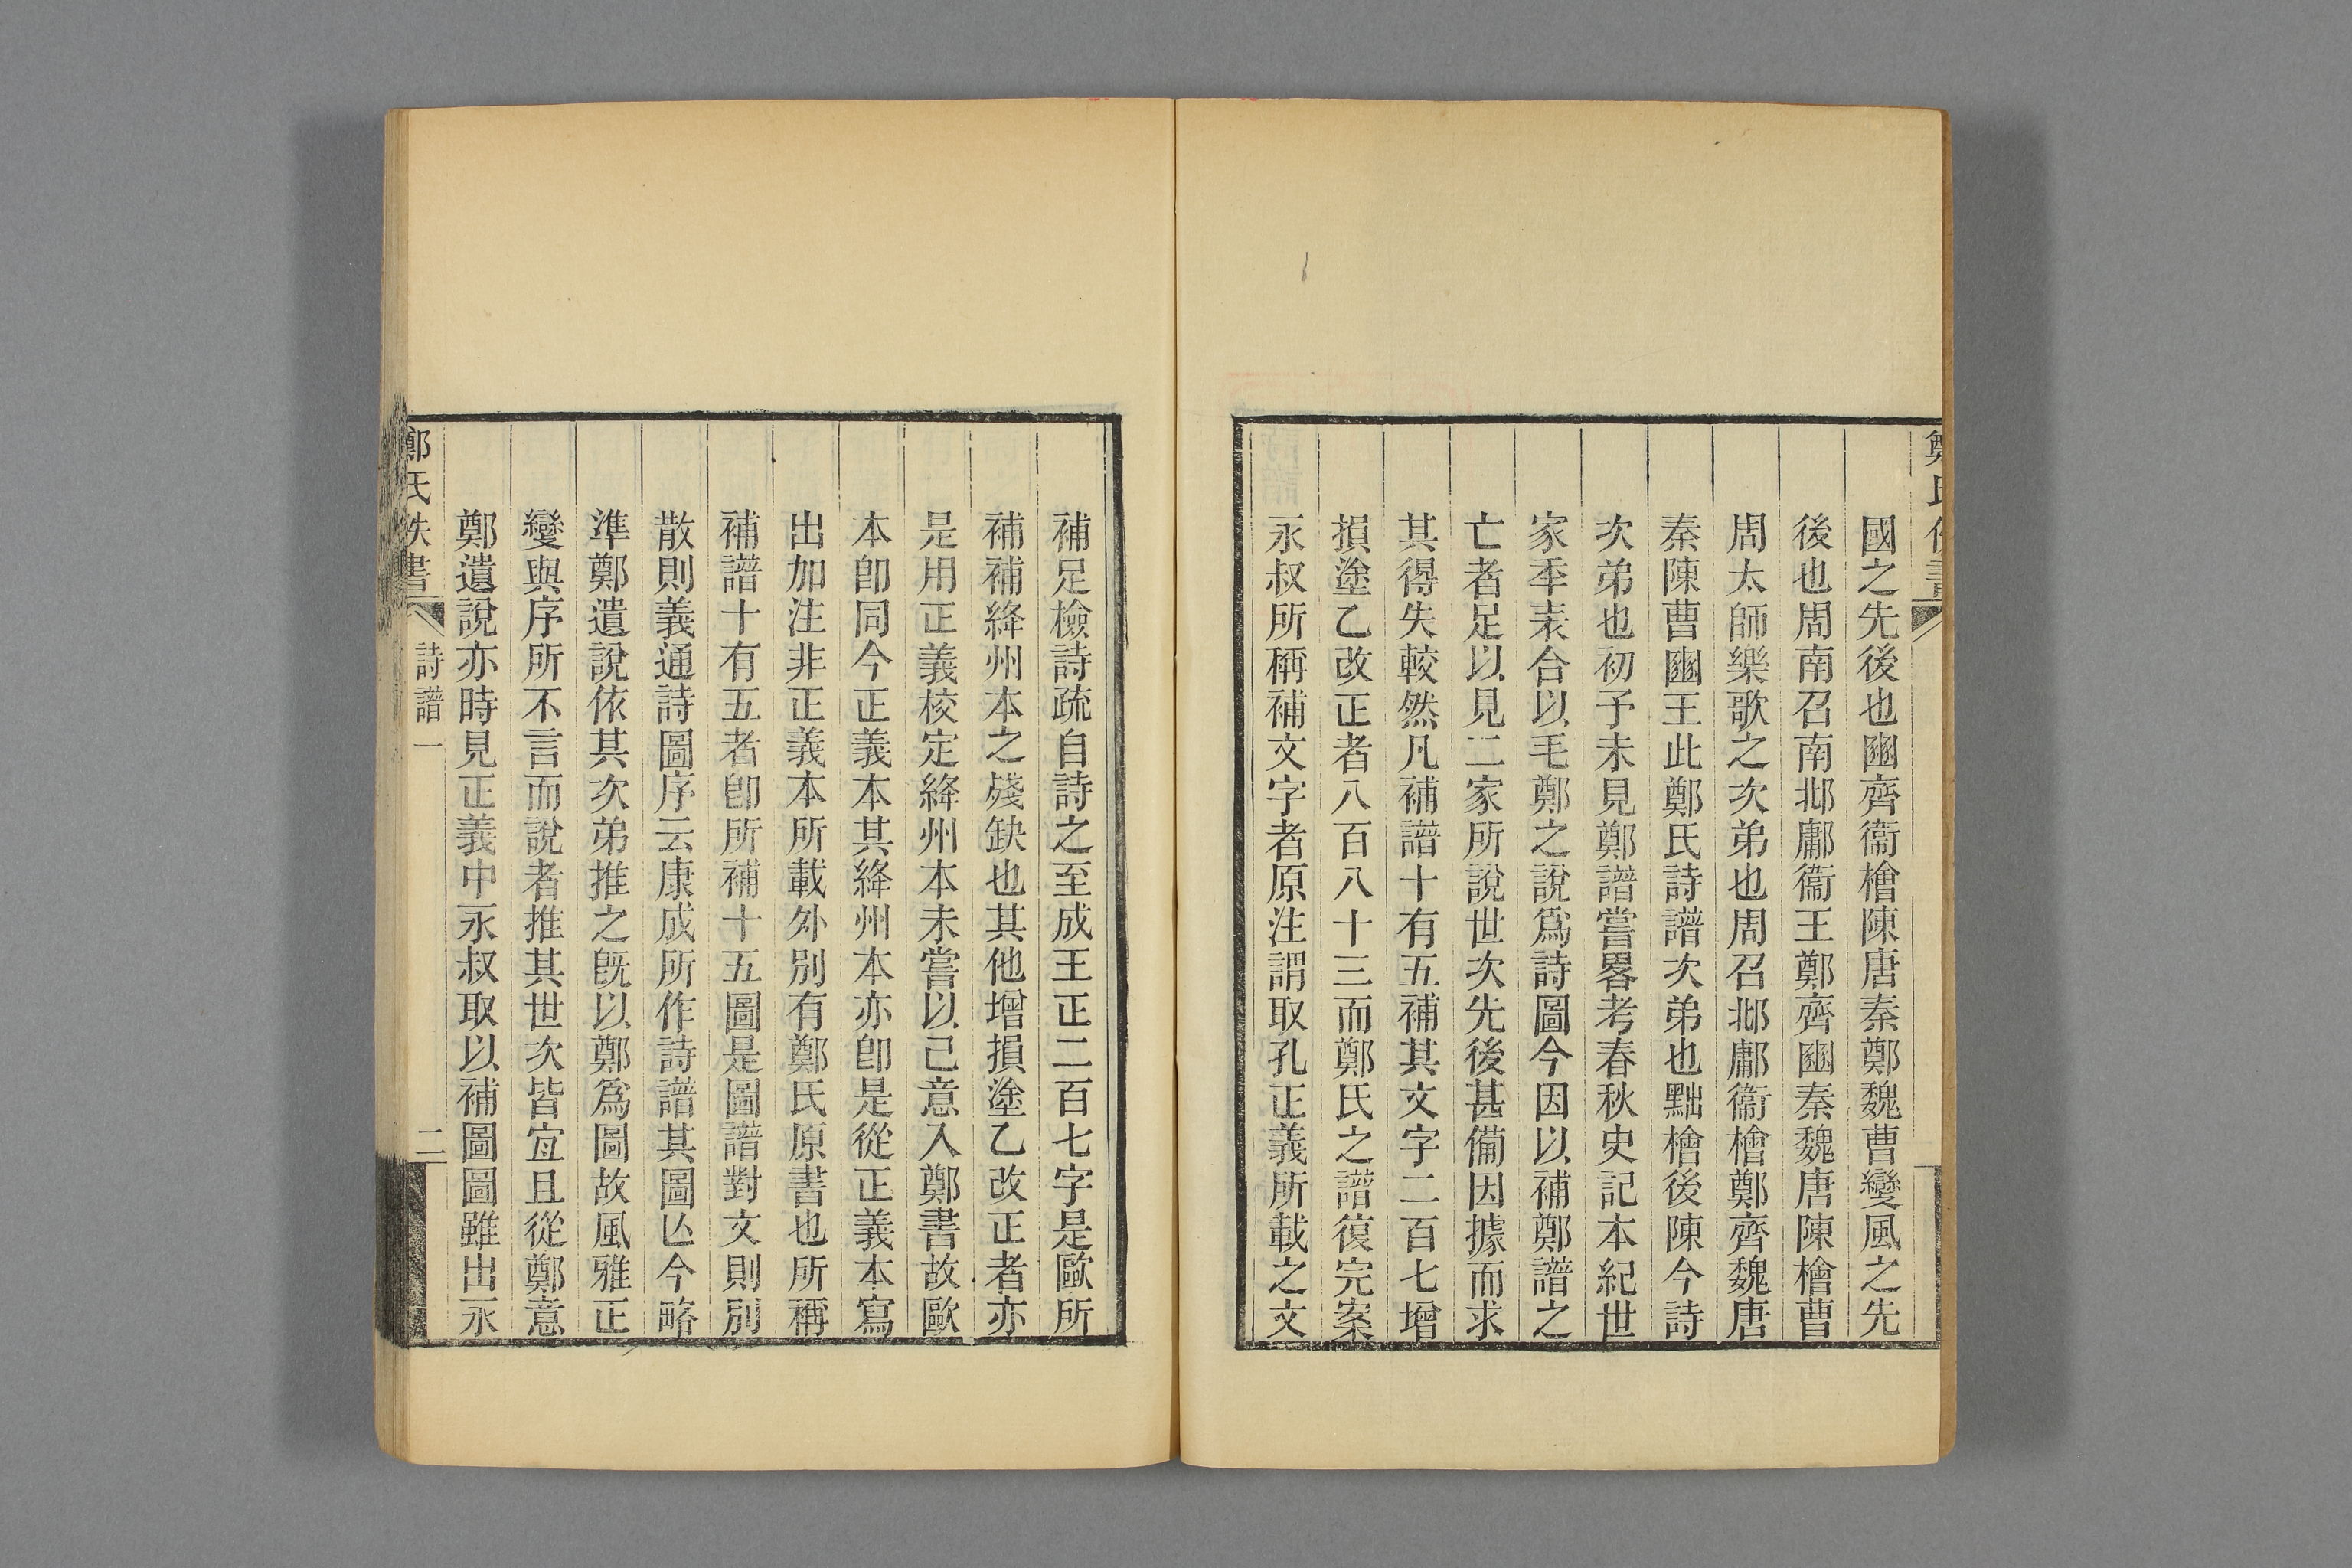 國之先後也豳齊衞檜陳唐秦鄭魏曹變風之先
後也周南召南邶鄘衞王鄭齊豳秦魏唐陳檜曹
周太師樂歌之次弟也周召邶鄘衞檜鄭齊魏唐
秦陳曹豳王此鄭氏詩譜次弟也黜檜後陳今詩
次弟也初予未見鄭譜嘗畧考春秋史記本紀世
家年表合以毛鄭之說爲詩圖今因以補鄭譜之
亡者足以見二家所說世次先後甚備因據而求
其得失較然凡補譜十有五補其文字二百七增
損塗乙改正者八百八十三而鄭氏之譜復完案
永叔所稱補文字者原注謂取孔正義所載之文
補足檢詩疏自詩之至成王正二百七字是歐所
補補絳州本之殘缺也其他增損塗乙改正者亦
是用正義校定絳州本未嘗以己意入鄭書故歐
本卽同今正義本其絳州本亦卽是從正義本寫
出加注非正義本所載外別有鄭氏原書也所稱
補譜十有五者卽所補十五圖是圖譜對文則別
散則義通詩圖序云康成所作詩譜其圖亾今略
準鄭遺說依其次弟推之旣以鄭爲圖故風雅正
變與序所不言而說者推其世次皆宐且從鄭意
鄭遺說亦時見正義中永叔取以補圖圖雖出永
鄭氏佚書
詩譜一
二